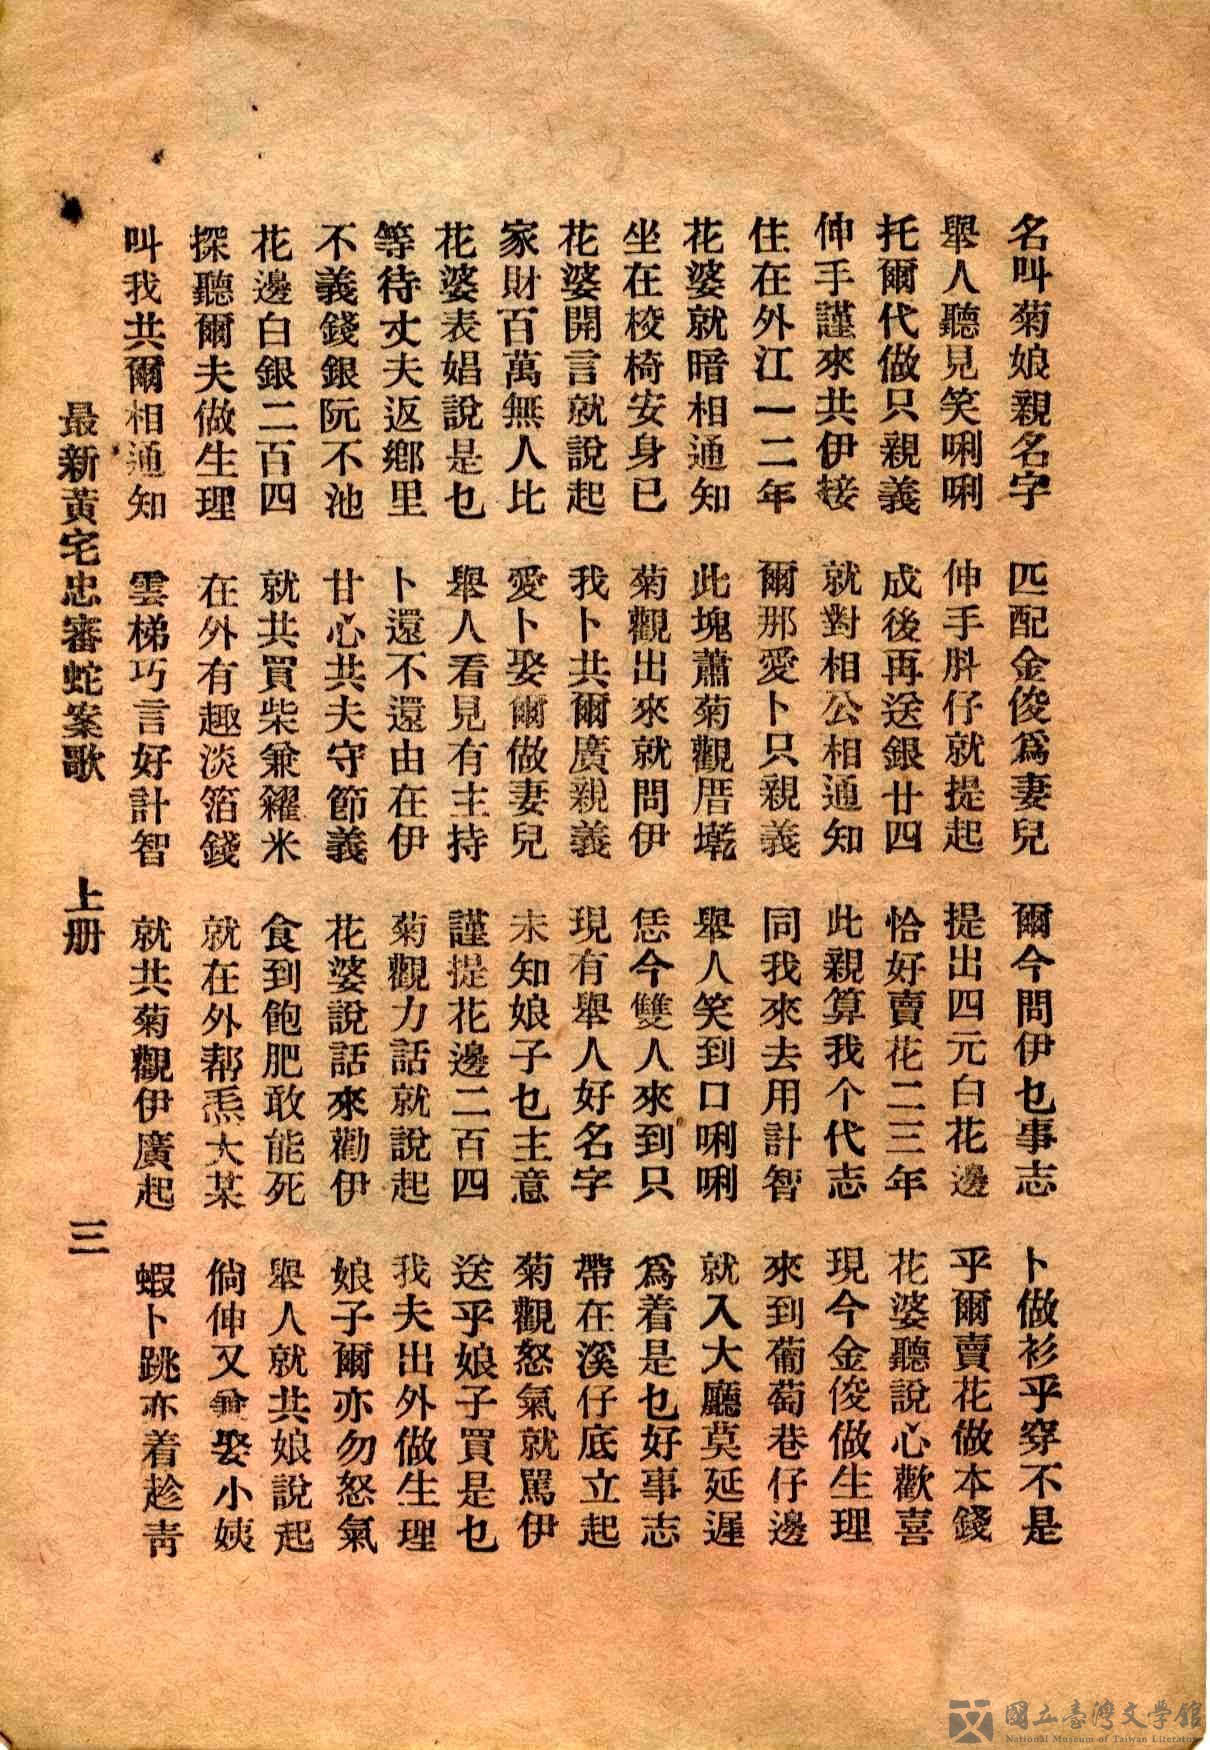 名叫菊娘親名字　匹配金俊爲妻兒　爾今問伊乜事志　卜做衫乎穿不是
舉人聽見笑唎唎　伸手胿仔就提起　提出四元白花邊　乎爾賣花做本錢
托爾代做只親義　成後再送銀廿四　恰好賣花二三年　花婆聽說心歡喜
伸手謹來共伊接　就對相公相通知　此親算我个代志　現今金俊做生理
住在外江一二年　爾那愛卜只親義　同我來去用計智　來到葡萄巷仔邊
花婆就暗相通知　此塊蕭菊觀厝墘　舉人笑到口唎唎　就入大廳莫延遲
坐在校椅安身已　菊觀出來就問伊　恁今雙人來到只　爲着是乜好事志
花婆開言就說起　我卜共爾廣親義　現有舉人好名字　帶在溪仔底立起
家財百萬無人比　愛卜娶爾做妻兒　未知娘子乜主意　菊觀怒氣就罵伊
花婆表娼說是乜　舉人看見有主持　謹提花邊二百四　送乎娘子買是乜
等待丈夫返鄉里　卜還不還由在伊　菊觀力話就說起　我夫出外做生理
不義錢銀阮不池　甘心共夫守節義　花婆說話來勸伊　娘子爾亦勿怒氣
花邊白銀二百四　就共買柴兼糴米　食到飽肥敢能死　舉人就共娘說起
探聽爾夫做生理　在外有趣淡箔錢　就在外帮焄大某　倘伸又兼娶小姨
叫我共爾相通知　雲梯巧言好計智　就共菊觀伊廣起　蝦卜跳亦着趁靑
最新黃宅忠審蛇案歌　上册　三
國立臺灣文學館
National Museum of Taiwan Literature